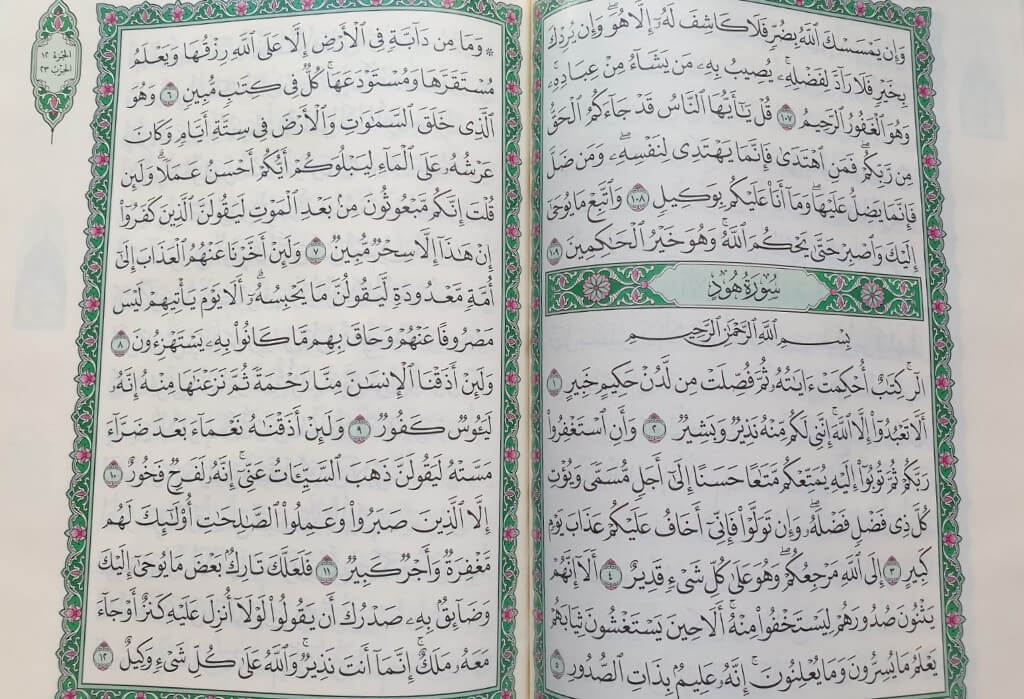 وَإِن يَمْسَسْكَ ٱللَّهُ بِضُرٍّ فَلَا كَاشِفَ لَهُۥٓ إِلَّا هُوَۖ وَإِن يُرِدْكَ
بِخَيْرٍ فَلَا رَآدَّ لِفَضْلِهِۦۚ يُصِيبُ بِهِۦ مَن يَشَآءُ مِنْ عِبَادِهِۦۚ
وَهُوَ ٱلْغَفُورُ ٱلرَّحِيمُ ١٠٧ قُلْ يَٰٓأَيُّهَا ٱلنَّاسُ قَدْ جَآءَكُمُ ٱلْحَقُّ
مِن رَّبِّكُمْۖ فَمَنِ ٱهْتَدَىٰ فَإِنَّمَا يَهْتَدِى لِنَفْسِهِۦۖ وَمَن ضَلَّ
فَإِنَّمَا يَضِلُّ عَلَيْهَاۖ وَمَآ أَنَا۠ عَلَيْكُم بِوَكِيلٍ ١٠٨ وَٱتَّبِعْ مَا يُوحَىٰٓ
إِلَيْكَ وَٱصْبِرْ حَتَّىٰ يَحْكُمَ ٱللَّهُۚ وَهُوَ خَيْرُ ٱلْحَٰكِمِينَ ١٠٩
سُورَةُ هُودٍ
بِسْمِ ٱللَّهِ ٱلرَّحْمَٰنِ ٱلرَّحِيمِ
الٓرۚ كِتَٰبٌ أُحْكِمَتْ ءَايَٰتُهُۥ ثُمَّ فُصِّلَتْ مِن لَّدُنْ حَكِيمٍ خَبِيرٍ ١
أَلَّا تَعْبُدُوٓا۟ إِلَّا ٱللَّهَۚ إِنَّنِى لَكُم مِّنْهُ نَذِيرٌ وَبَشِيرٌ ٢ وَأَنِ ٱسْتَغْفِرُوا۟
رَبَّكُمْ ثُمَّ تُوبُوٓا۟ إِلَيْهِ يُمَتِّعْكُم مَّتَٰعًا حَسَنًا إِلَىٰٓ أَجَلٍ مُّسَمًّى وَيُؤْتِ
كُلَّ ذِى فَضْلٍ فَضْلَهُۥۖ وَإِن تَوَلَّوْا۟ فَإِنِّىٓ أَخَافُ عَلَيْكُمْ عَذَابَ يَوْمٍ
كَبِيرٍ ٣ إِلَى ٱللَّهِ مَرْجِعُكُمْۖ وَهُوَ عَلَىٰ كُلِّ شَىْءٍ قَدِيرٌ ٤ أَلَآ إِنَّهُمْ
يَثْنُونَ صُدُورَهُمْ لِيَسْتَخْفُوا۟ مِنْهُۚ أَلَا حِينَ يَسْتَغْشُونَ ثِيَابَهُمْ
يَعْلَمُ مَا يُسِرُّونَ وَمَا يُعْلِنُونَۚ إِنَّهُۥ عَلِيمٌۢ بِذَاتِ ٱلصُّدُورِ ٥
الجزء ١٢
الحزب ٢٣
۞ وَمَا مِن دَآبَّةٍ فِى ٱلْأَرْضِ إِلَّا عَلَى ٱللَّهِ رِزْقُهَا وَيَعْلَمُ
مُسْتَقَرَّهَا وَمُسْتَوْدَعَهَاۚ كُلٌّ فِى كِتَٰبٍ مُّبِينٍ ٦ وَهُوَ
ٱلَّذِى خَلَقَ ٱلسَّمَٰوَٰتِ وَٱلْأَرْضَ فِى سِتَّةِ أَيَّامٍ وَكَانَ
عَرْشُهُۥ عَلَى ٱلْمَآءِ لِيَبْلُوَكُمْ أَيُّكُمْ أَحْسَنُ عَمَلًاۗ وَلَئِن
قُلْتَ إِنَّكُم مَّبْعُوثُونَ مِنۢ بَعْدِ ٱلْمَوْتِ لَيَقُولَنَّ ٱلَّذِينَ كَفَرُوٓا۟
إِنْ هَٰذَآ إِلَّا سِحْرٌ مُّبِينٌ ٧ وَلَئِنْ أَخَّرْنَا عَنْهُمُ ٱلْعَذَابَ إِلَىٰٓ
أُمَّةٍ مَّعْدُودَةٍ لَّيَقُولُنَّ مَا يَحْبِسُهُۥٓۗ أَلَا يَوْمَ يَأْتِيهِمْ لَيْسَ
مَصْرُوفًا عَنْهُمْ وَحَاقَ بِهِم مَّا كَانُوا۟ بِهِۦ يَسْتَهْزِءُونَ ٨
وَلَئِنْ أَذَقْنَا ٱلْإِنسَٰنَ مِنَّا رَحْمَةً ثُمَّ نَزَعْنَٰهَا مِنْهُ إِنَّهُۥ
لَيَـُٔوسٌ كَفُورٌ ٩ وَلَئِنْ أَذَقْنَٰهُ نَعْمَآءَ بَعْدَ ضَرَّآءَ
مَسَّتْهُ لَيَقُولَنَّ ذَهَبَ ٱلسَّيِّـَٔاتُ عَنِّىٓۚ إِنَّهُۥ لَفَرِحٌ فَخُورٌ ١٠
إِلَّا ٱلَّذِينَ صَبَرُوا۟ وَعَمِلُوا۟ ٱلصَّٰلِحَٰتِ أُو۟لَٰٓئِكَ لَهُم
مَّغْفِرَةٌ وَأَجْرٌ كَبِيرٌ ١١ فَلَعَلَّكَ تَارِكٌۢ بَعْضَ مَا يُوحَىٰٓ إِلَيْكَ
وَضَآئِقٌۢ بِهِۦ صَدْرُكَ أَن يَقُولُوا۟ لَوْلَآ أُنزِلَ عَلَيْهِ كَنزٌ أَوْ جَآءَ
مَعَهُۥ مَلَكٌۚ إِنَّمَآ أَنتَ نَذِيرٌۚ وَٱللَّهُ عَلَىٰ كُلِّ شَىْءٍ وَكِيلٌ ١٢